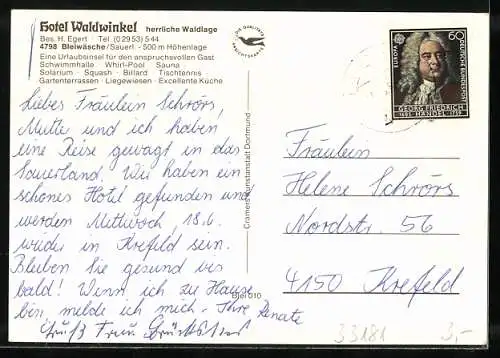 Hotel Waldwinkel herrliche Waldlage
Bes. H. Egert Tel (02953) 544
4798 Bleiwäsche/Sauerl - 500 m Höhenlage
Eine Urlaubsinsel für den anspruchsvollen Gast
Schwimmhalle Whirl-Pool Sauna
Solarium · Squash · Billard Tischtennis
Gartenterrassen · Liegewiesen · Excellente Küche
Liebes Fräulein Schrörs,
Mutter und ich haben
eine Reise gewagt in das
Sauerland. Wir haben ein
schönes Hotel gefunden und
werden Mittwoch, 18.6.
wieder in Krefeld sein.
Bleiben Sie gesund bis
bald! Wenn ich zu Hause
bin, melde ich mich. Ihre Renate
Gruß Frau
Blei 010
Cramers Kunstanstalt Dortmund
EUROPA
60
DEUTSCHE BUNDESPOST
GEORG FRIEDRICH
1685 HÄNDEL 1759
Fräulein
Helene Schrörs
Nordstr. 56
4150 Krefeld
33181
3,-